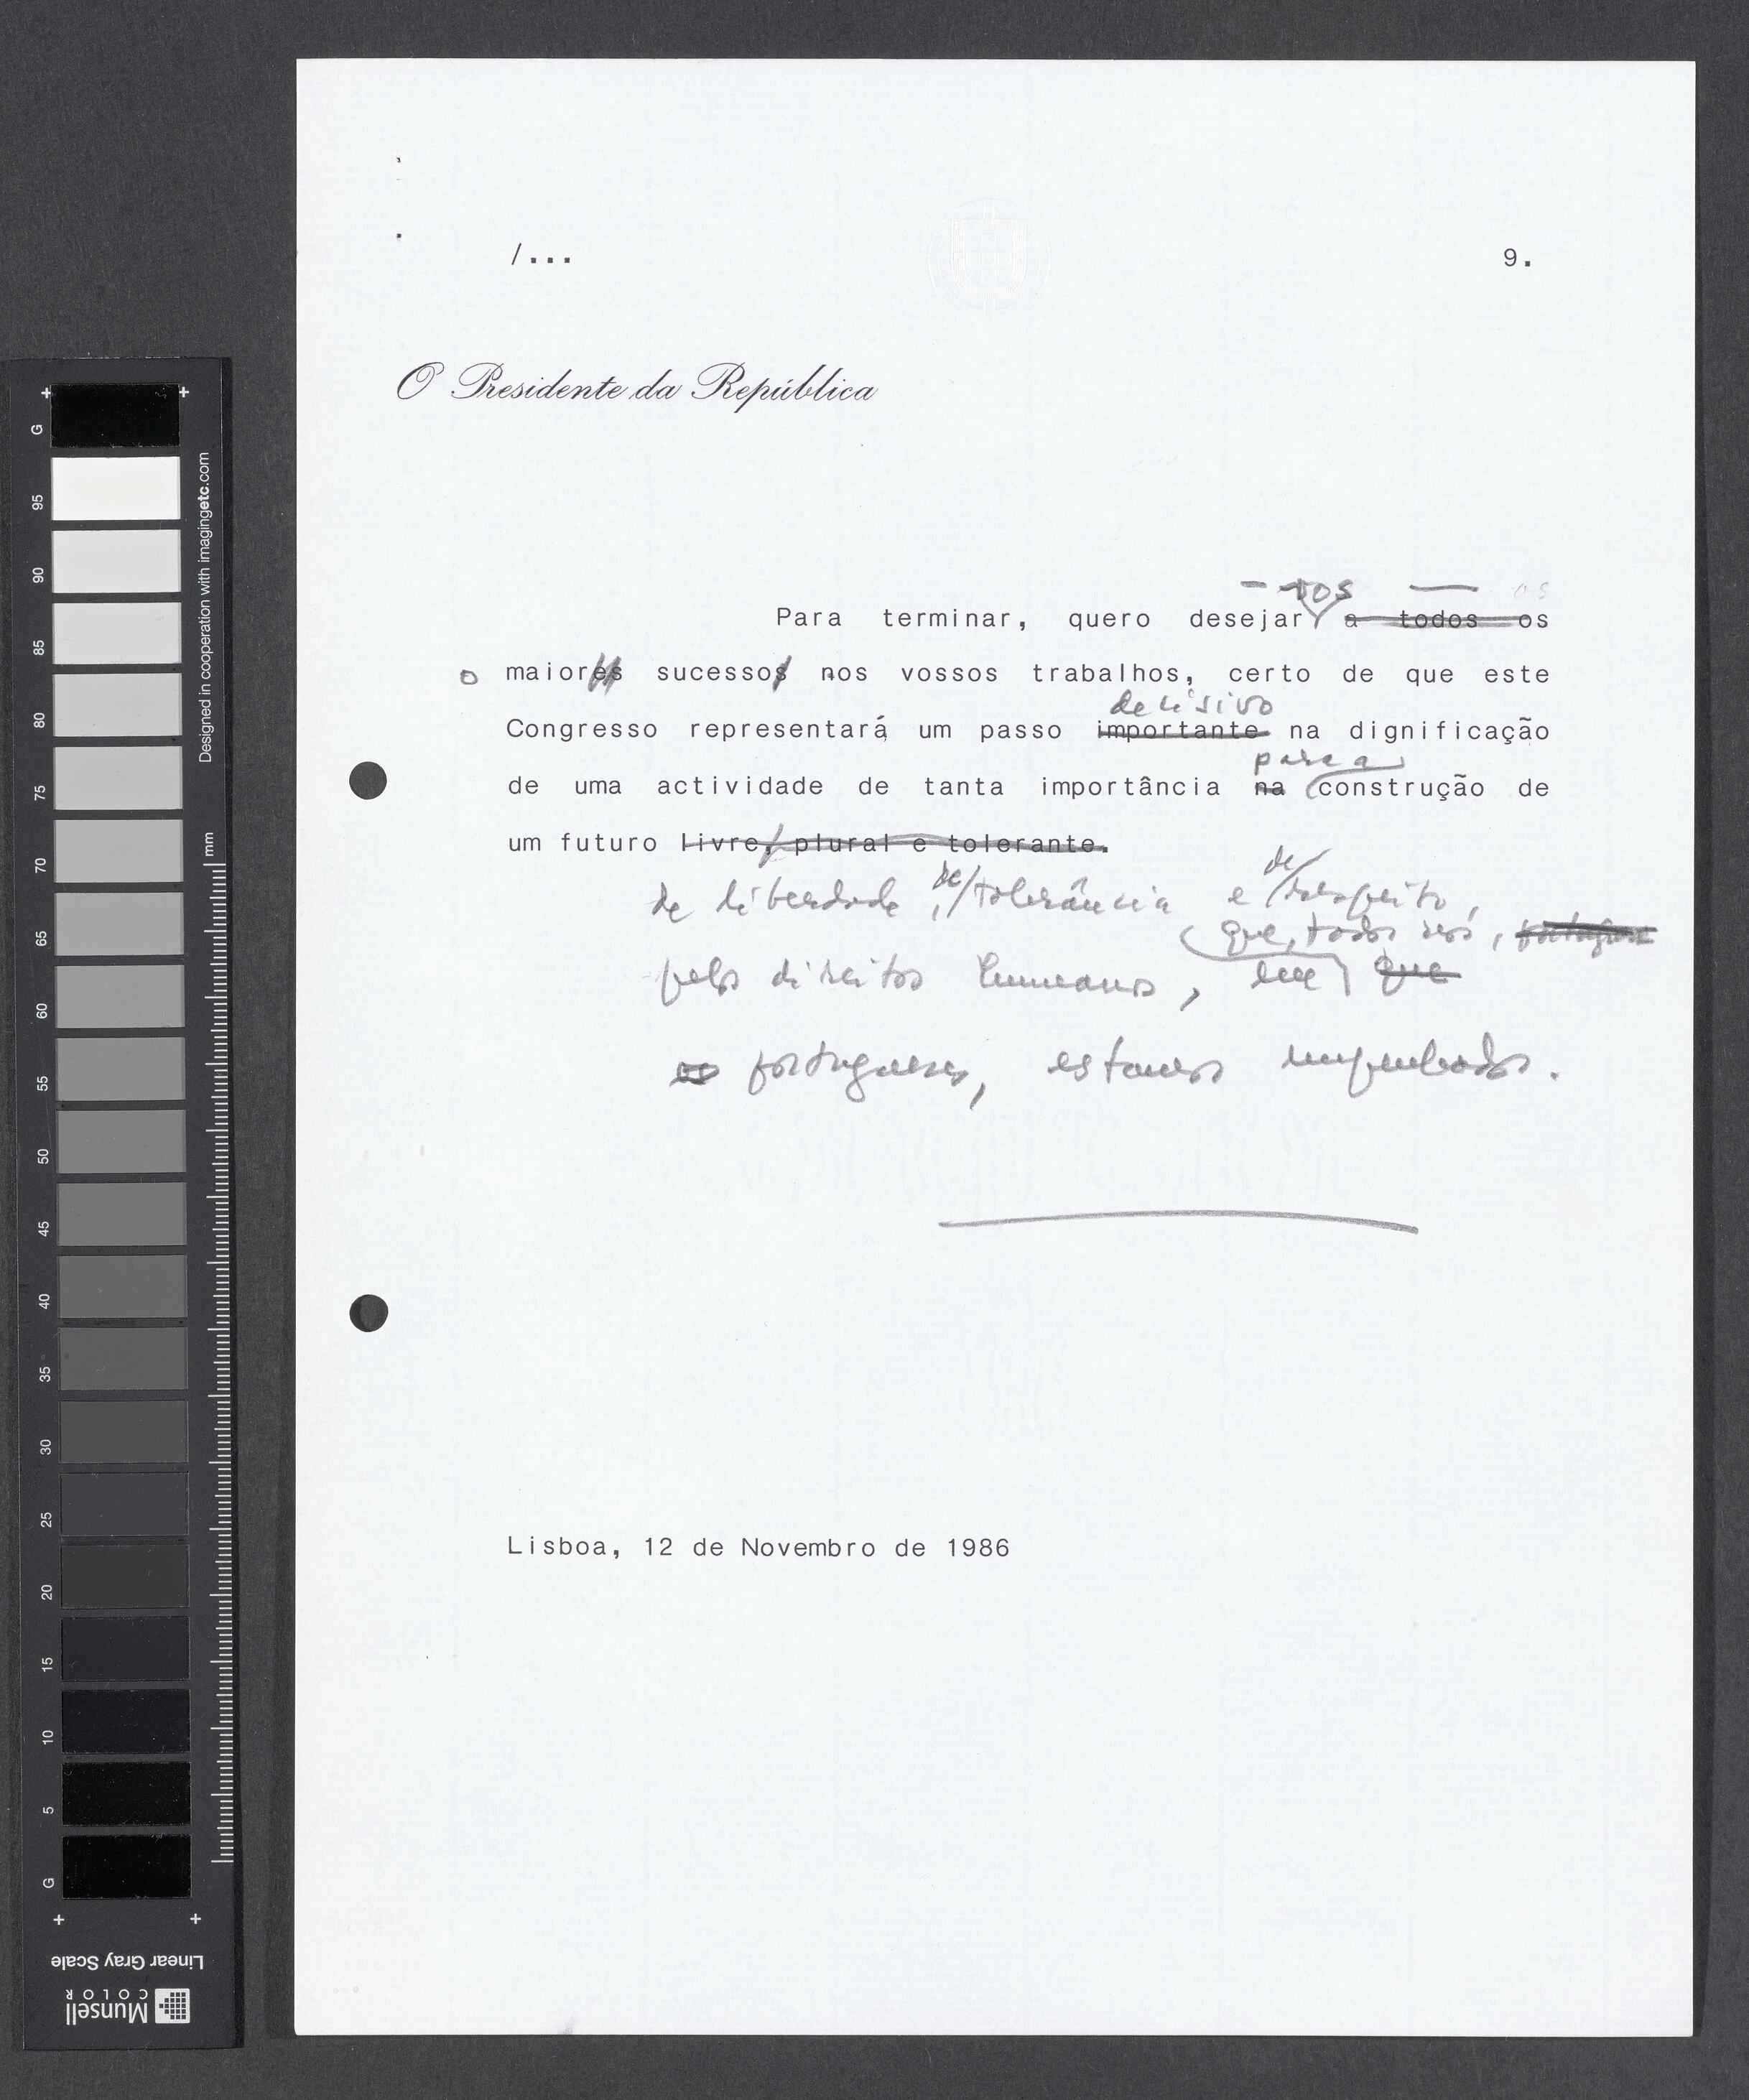 /... 9.
O Presidente da República
- vos —
Para terminar, quero desejar a todos os
o maiores sucessos nos vossos trabalhos, certo de que este
decisivo
Congresso representará um passo importante na dignificação
para a
de uma actividade de tanta importância na construção de
um futuro livre, plural e tolerante.
de de
de liberdade, tolerância e respeito,
que, todos nós,
pelos direitos humanos, em que
os portugueses, estamos empenhados.
Lisboa, 12 de Novembro de 1986
G 95 90 85 80 75 70 65 60 55 50 45 40 35 30 25 20 15 10 5 G
Designed in cooperation with imagingetc.com
mm
Linear Gray Scale
Munsell
COLOR